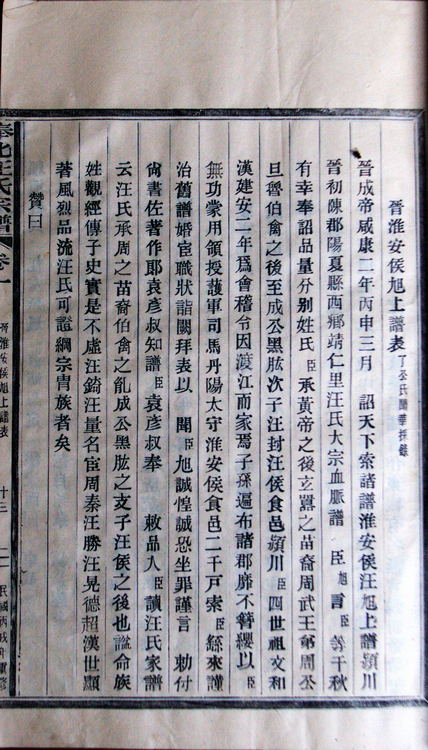 晉淮安侯旭上譜表 了公氏聞華採錄
晉成帝咸康二年丙申三月 詔天下索諸譜淮安侯汪旭上譜潁川
晉初陳郡陽夏縣西鄉靖仁里汪氏大宗血脈譜 臣旭言臣等千秋
有幸奉詔品量分别姓氏 臣承黃帝之後玄囂之苗裔周武王弟周公
旦晉伯禽之後至成公黑肱次子汪封汪侯食邑潁川 臣四世祖文和
漢建安二年爲會稽令因渡江而家焉子孫遍布諸郡靡不簪纓以 臣
無功蒙用領授護軍司馬丹陽太守淮安侯食邑二千戸索 臣繇來謹
治舊譜婚宦職狀詣闕拜表以 聞 臣旭誠惶誠恐坐罪謹言 勅付
尙書佐著作郎袁彦叔知譜 臣袁彦叔奉 敕品人 臣讀汪氏家譜
云汪氏承周之苗裔伯禽之胤成公黑肱之支子汪侯之後也謚命族
姓觀經傳子史實是不虛汪錡汪量名宦周秦汪勝汪晃德超漢世顯
著風烈品流汪氏可證綱宗胄族者矣
贊曰
奉北汪氏宗譜 卷一
晉淮安侯旭上譜表
十三
民國丙戌年重修